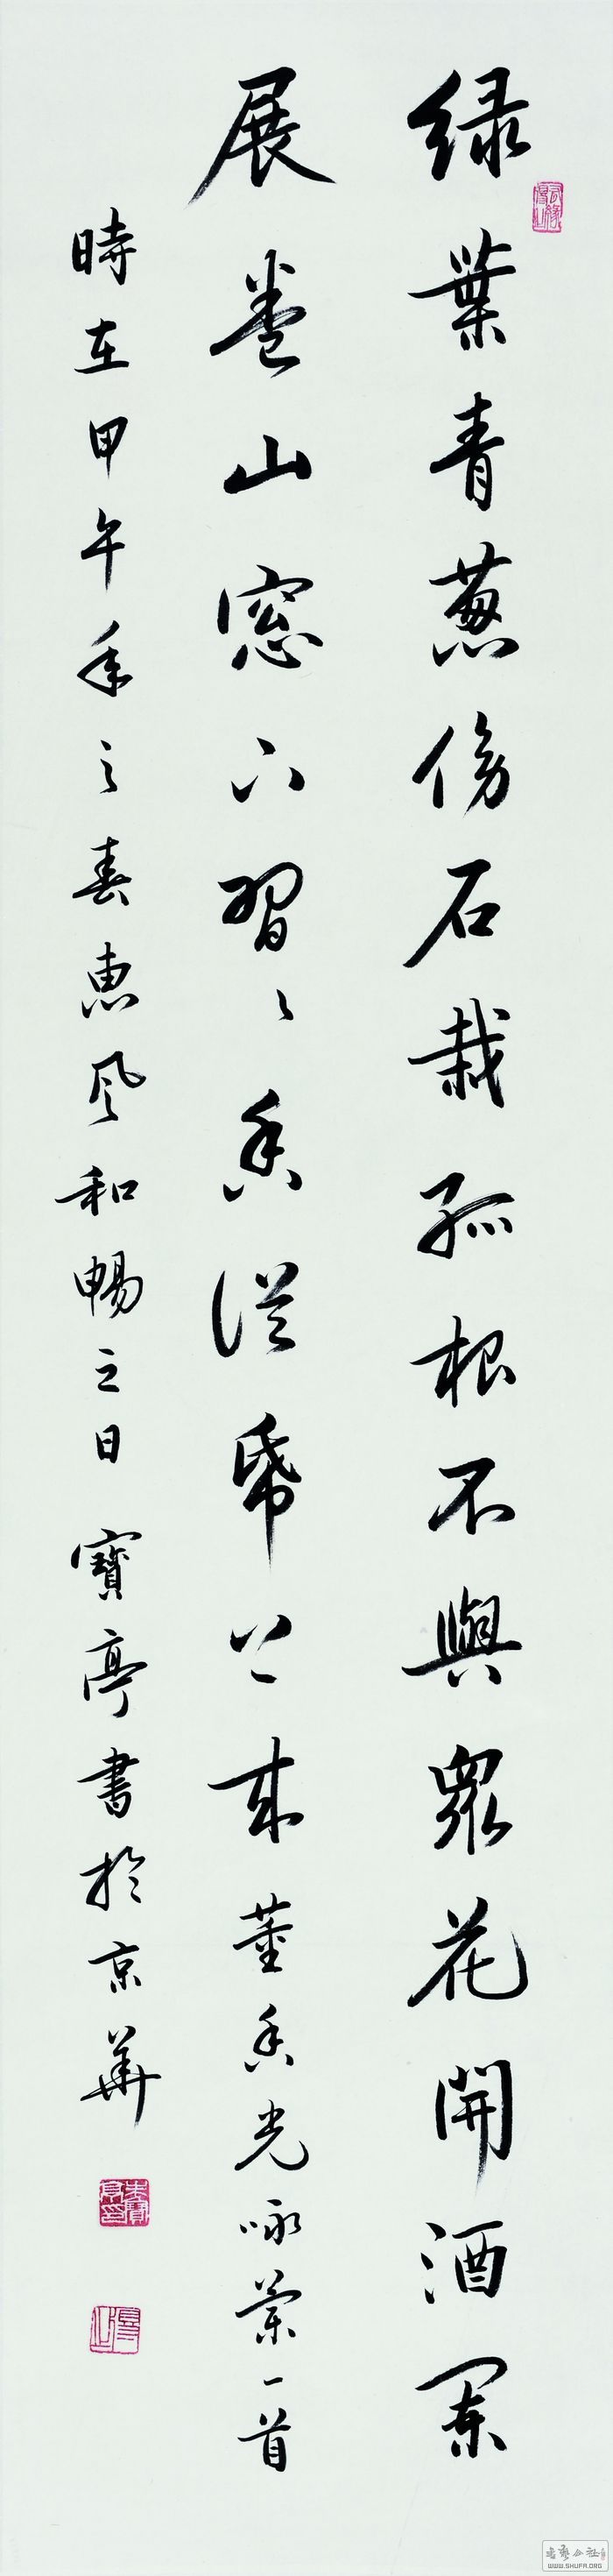 绿葉青葱傍石栽孤根不與眾花開酒闌
展卷山窓下習〻香從紙上來董香光咏蘭一首
時在甲午年之春惠风和暢之日寶亭書於京華
WWW.SHUFA.ORG